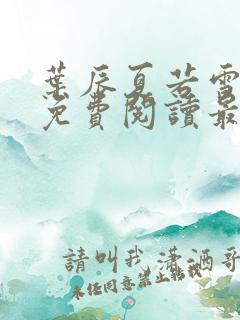 葉辰夏若雪
免費閱讀最
請叫我瀟洒哥
未经同意禁止転載